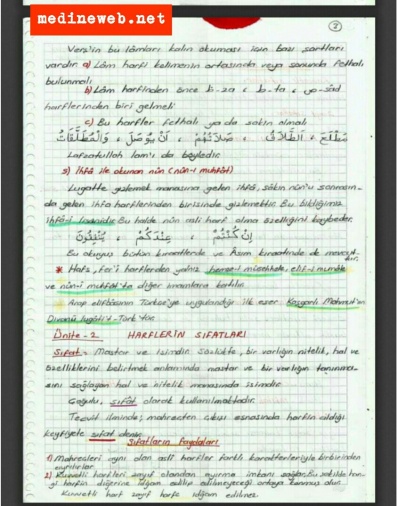 medineweb.net
3
Verş'in bu lâmları kalın okuması için bazı şartları
vardır a) Lâm harfi kelimenin ortasında veya sonunda fethalı
bulunmalı
b) Lâm harfinden önce ı-za , ı-ta , ص-sâd
harflerinden biri gelmeli
c) Bu harfler fethalı ya da sakin olmalı
مَطْلَعِ ، اَلطَّلَاقُ ، صَلَاتَهُمْ ، اَنْ يُوصَلَ ، وَالْمُطَلَّقَاتُ
Lafzatullah lam'ı da böyledir
3) İhfâ ile okunan nûn (nûn-ı muhfât)
Lugatte gizlemek manasına gelen ihfâ, sâkin nûn'u sonrasın-
da gelen ihfa harflerinden birisinde gizlemektir. Bu bildiğimiz
ihfâ-i lisanidir Bu halde nûn asli harf olma özelliğini kaybeder.
اِنْ كُنْتُمْ ، عِنْدَكُمْ ، يُنْفِقُونَ
Bu okuyuş bütün kıraatlerde ve Asım kıraatinde de mevcut-
dur.
* Hafs, fer'i harflerden yalnız hemze-i müsehhele, elif-i mumâle
ve nûn-i muhfat'ta diğer imamlara katılır.
Arap elifbasının Türkçe'ye uygulandığı ilk eser Kaşgarlı Mahmut'un
Divanü lugâti't-Türk'tür.
Ünite - 2 HARFLERİN SIFATLARI
Sıfat: Mastar ve isimdir Sözlükte, bir varlığın nitelik, hal ve
özelliklerini belirtmek anlamında mastar ve bir varlığın tanınma-
sını sağlayan hal ve nitelik manasında isimdir
Çoğulu, sıfât olarak kullanılmaktadır.
Tecvit ilminde; mahreçten çıkışı esnasında harfin aldığı
keyfiyete sıfat denir.
Sıfatların Faydaları
1) Mahreçleri aynı olan asli harfler farklı karakterleriyle birbirinden
ayrılırlar
2) Kuvvetli harfleri zayıf olandan ayırma imkanı sağlar. Bu şekilde han-
gi harfin diğerine idğam edilip edilmeyeceği ortaya konmuş olur
Kuvvetli harf zayıf harfe idğam edilmez